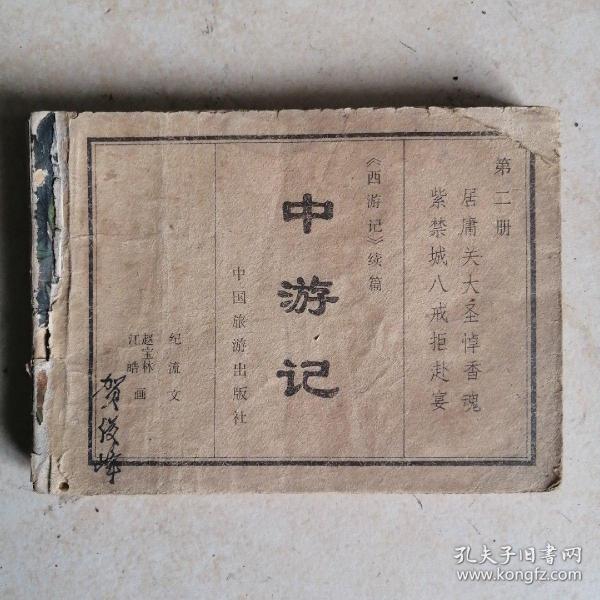 第二册
居庸关大圣悼香魂
紫禁城八戒拒赴宴
《西游记》续篇
中游记
中国旅游出版社
纪流文
赵宝林
江皓画
贺俊峰
孔夫子旧书网
www.kongfz.com